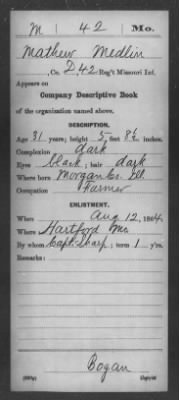 M 42 Mo.
Mathew Medlin
, Co. D, 42 Reg't Missouri Inf.
Appears on
Company Descriptive Book
of the organization named above.
DESCRIPTION.
Age 31 years; height 5 feet 8½ inches.
Complexion dark
Eyes black; hair dark
Where born Morgan Co. Ill.
Occupation Farmer
ENLISTMENT.
When Aug 12, 1864.
Where Hartford Mo.
By whom Capt. Sharp; term 1 y'rs.
Remarks:
Bogan
Copyist.